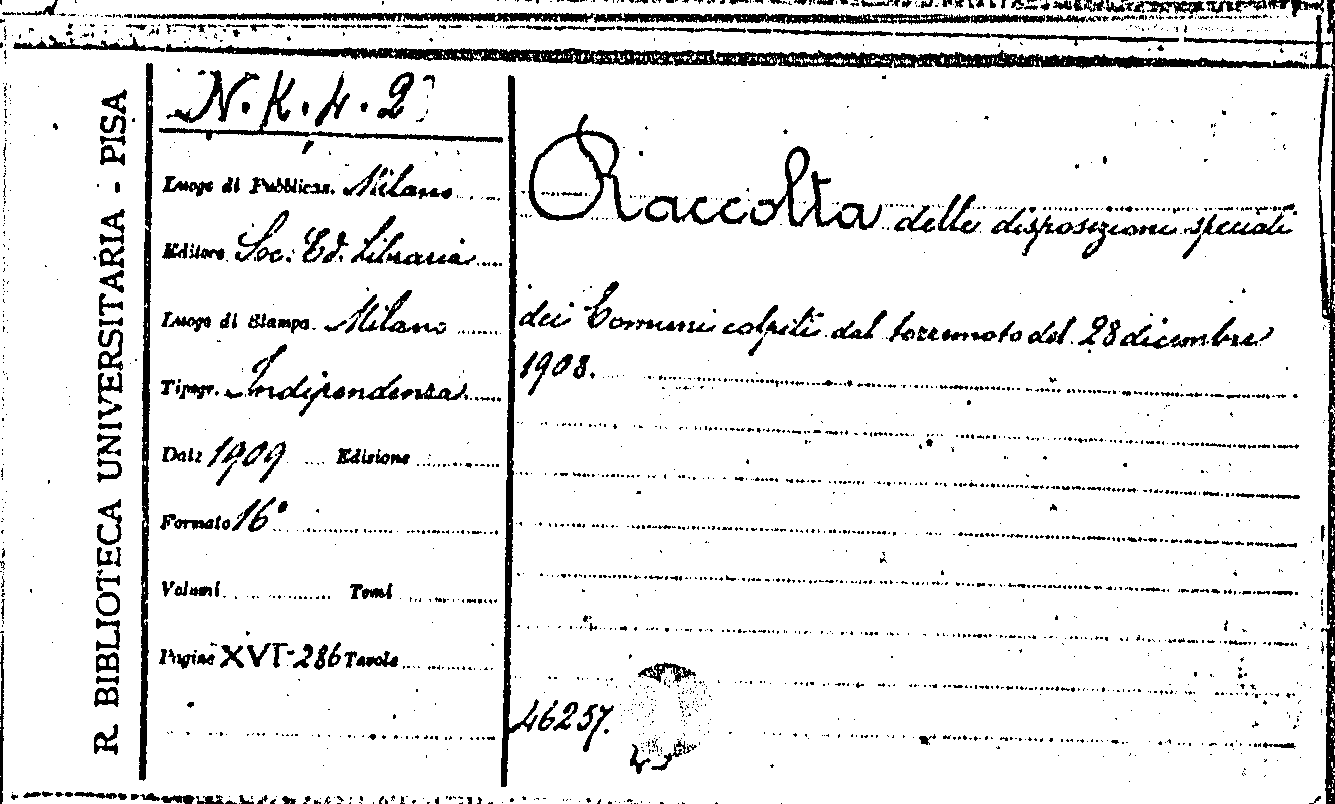 R. BIBLIOTECA UNIVERSITARIA - PISA
N. K. 4. 2
Luogo di Pubblicaz. Milano
Editore Soc. Ed. Libraria
Luogo di Stampa Milano
Tipogr. Indipendenza
Data 1909 Edizione
Formato 16°
Volumi Tomi
Pagine XVI-286 Tavole
Raccolta delle disposizioni speciali
dei Comuni colpiti dal terremoto del 28 dicembre
1908.
46257.